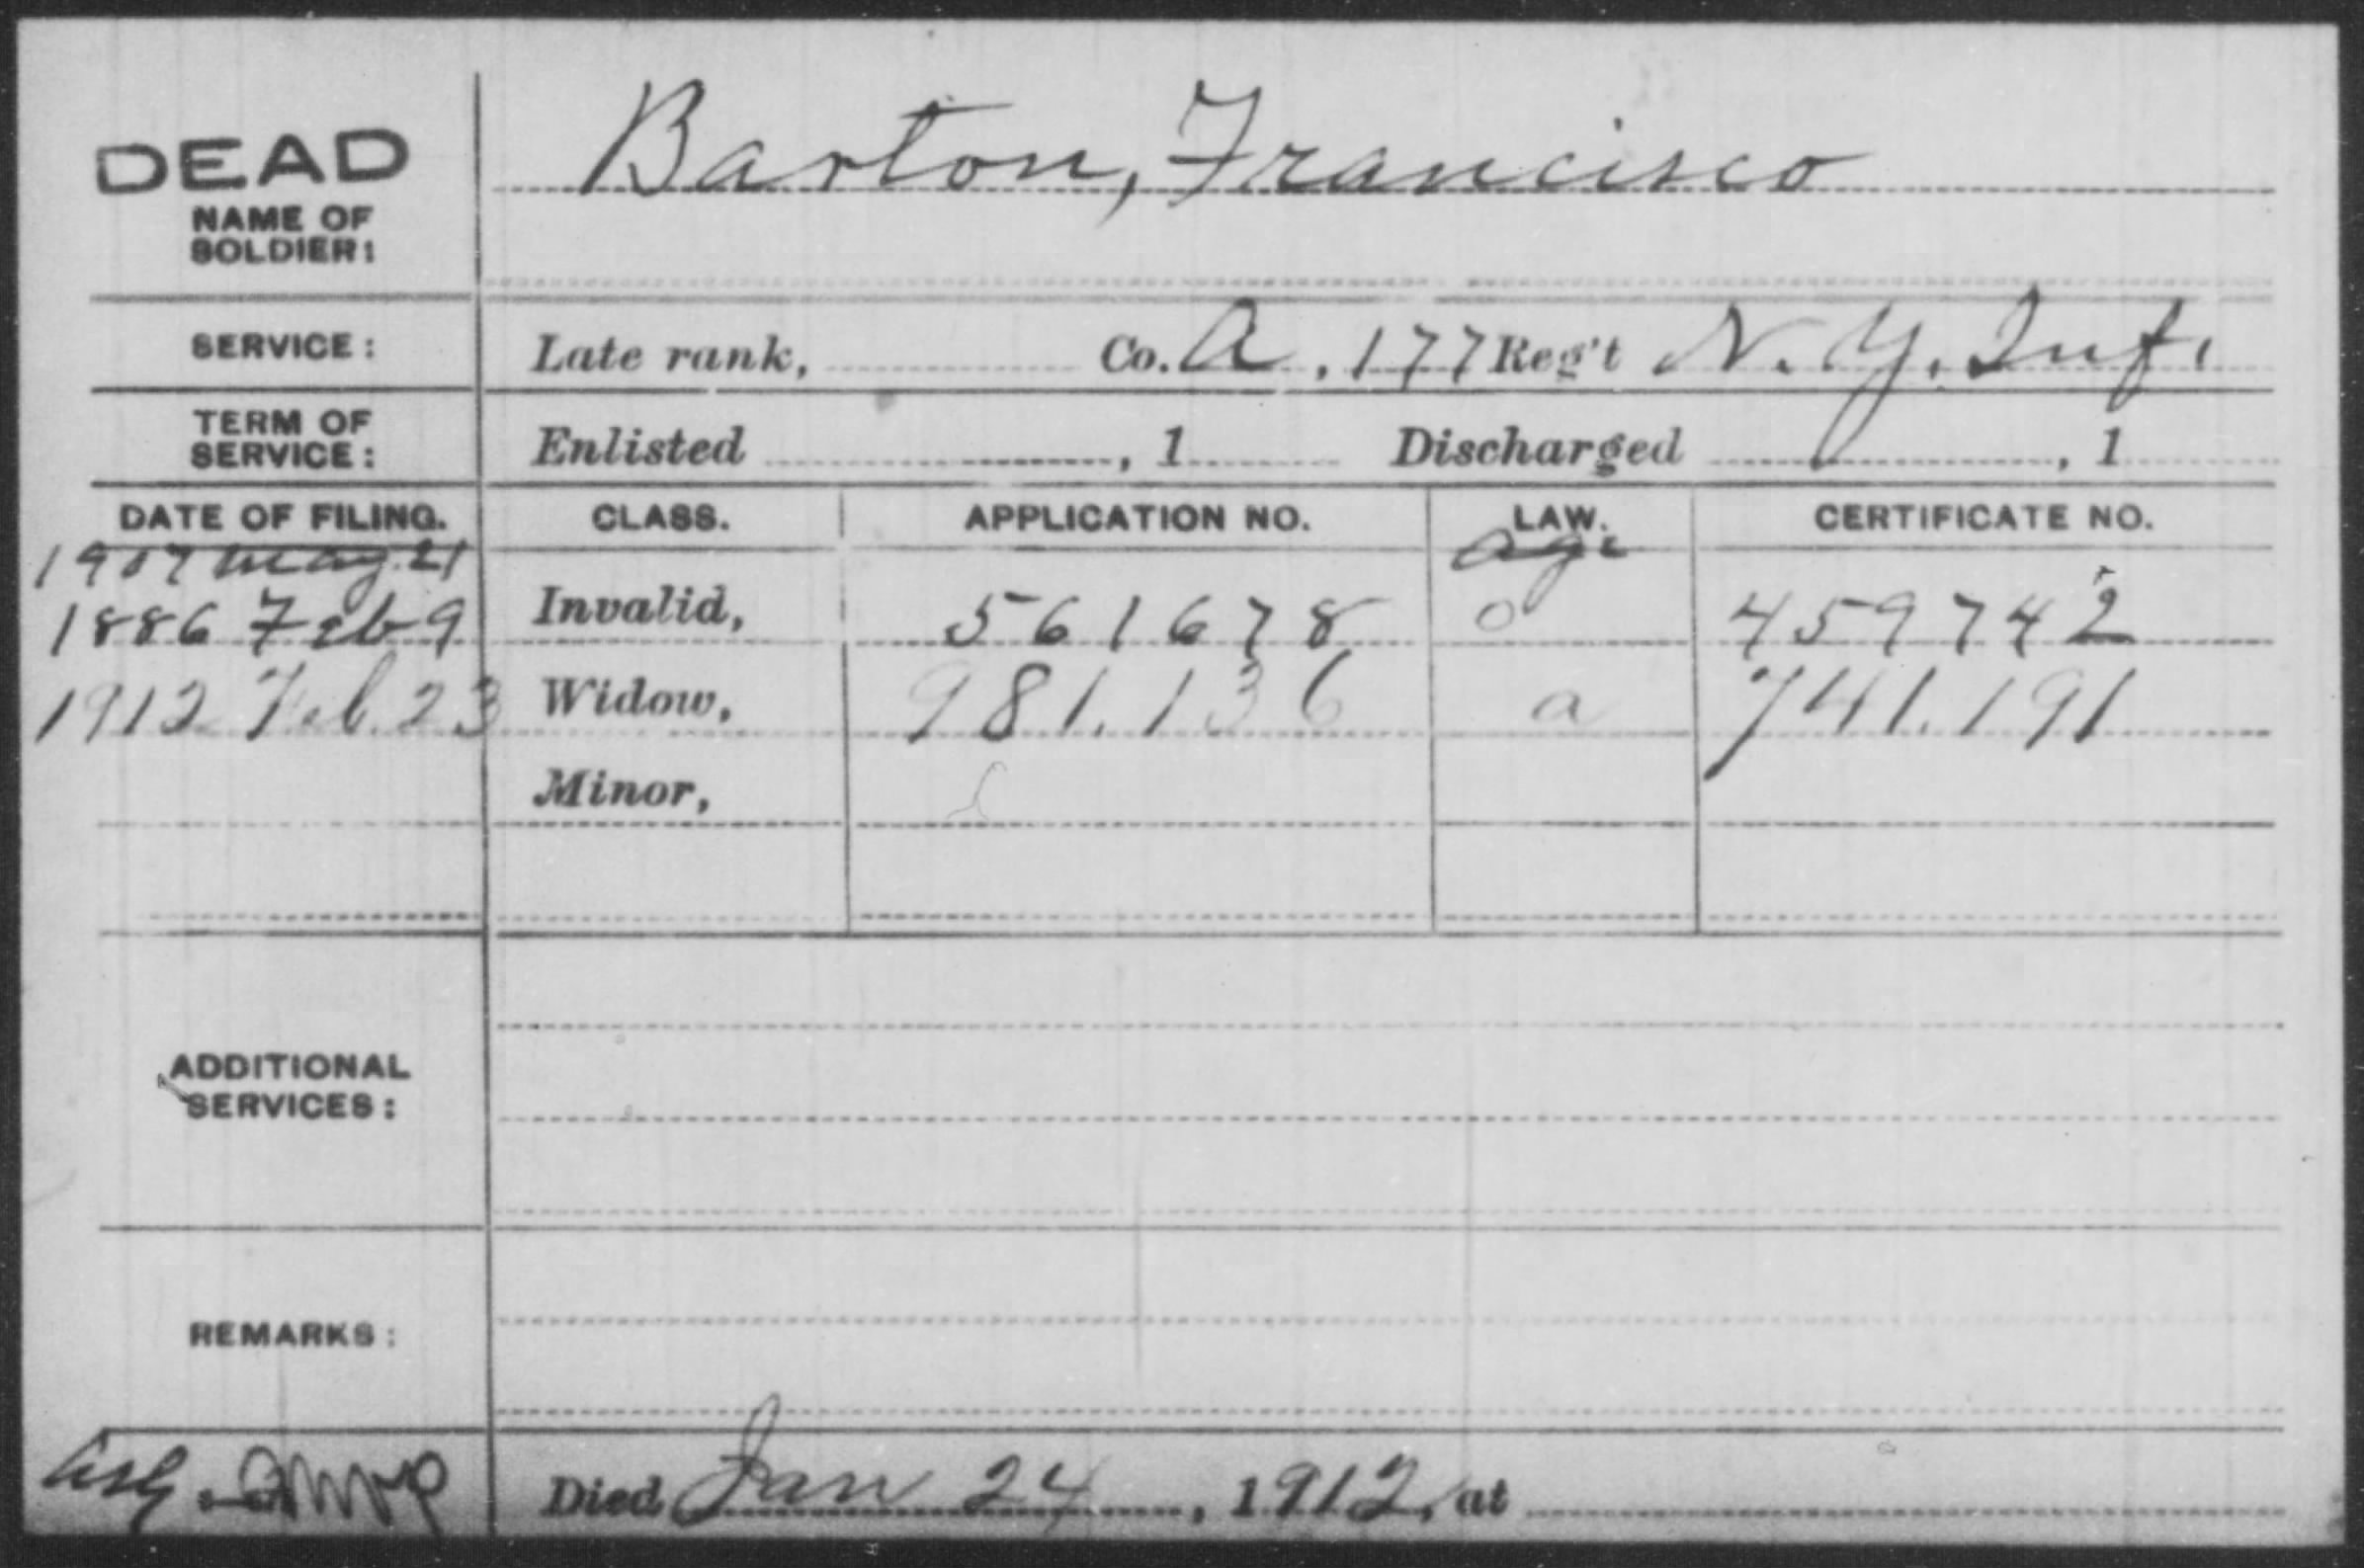 DEAD
Barton, Francisco
NAME OF
SOLDIER:
SERVICE: Late rank, Co. A, 177 Reg't N. Y. Inf.
TERM OF
SERVICE: Enlisted , 1 Discharged , 1
DATE OF FILING. CLASS. APPLICATION NO. LAW. CERTIFICATE NO.
1907 May 21 age
1886 Feb 9 Invalid, 561678 0 459742
1912 Feb. 23 Widow, 981.136 a 741.191
Minor,
ADDITIONAL
SERVICES:
REMARKS:
Died Jan 24, 1912, at